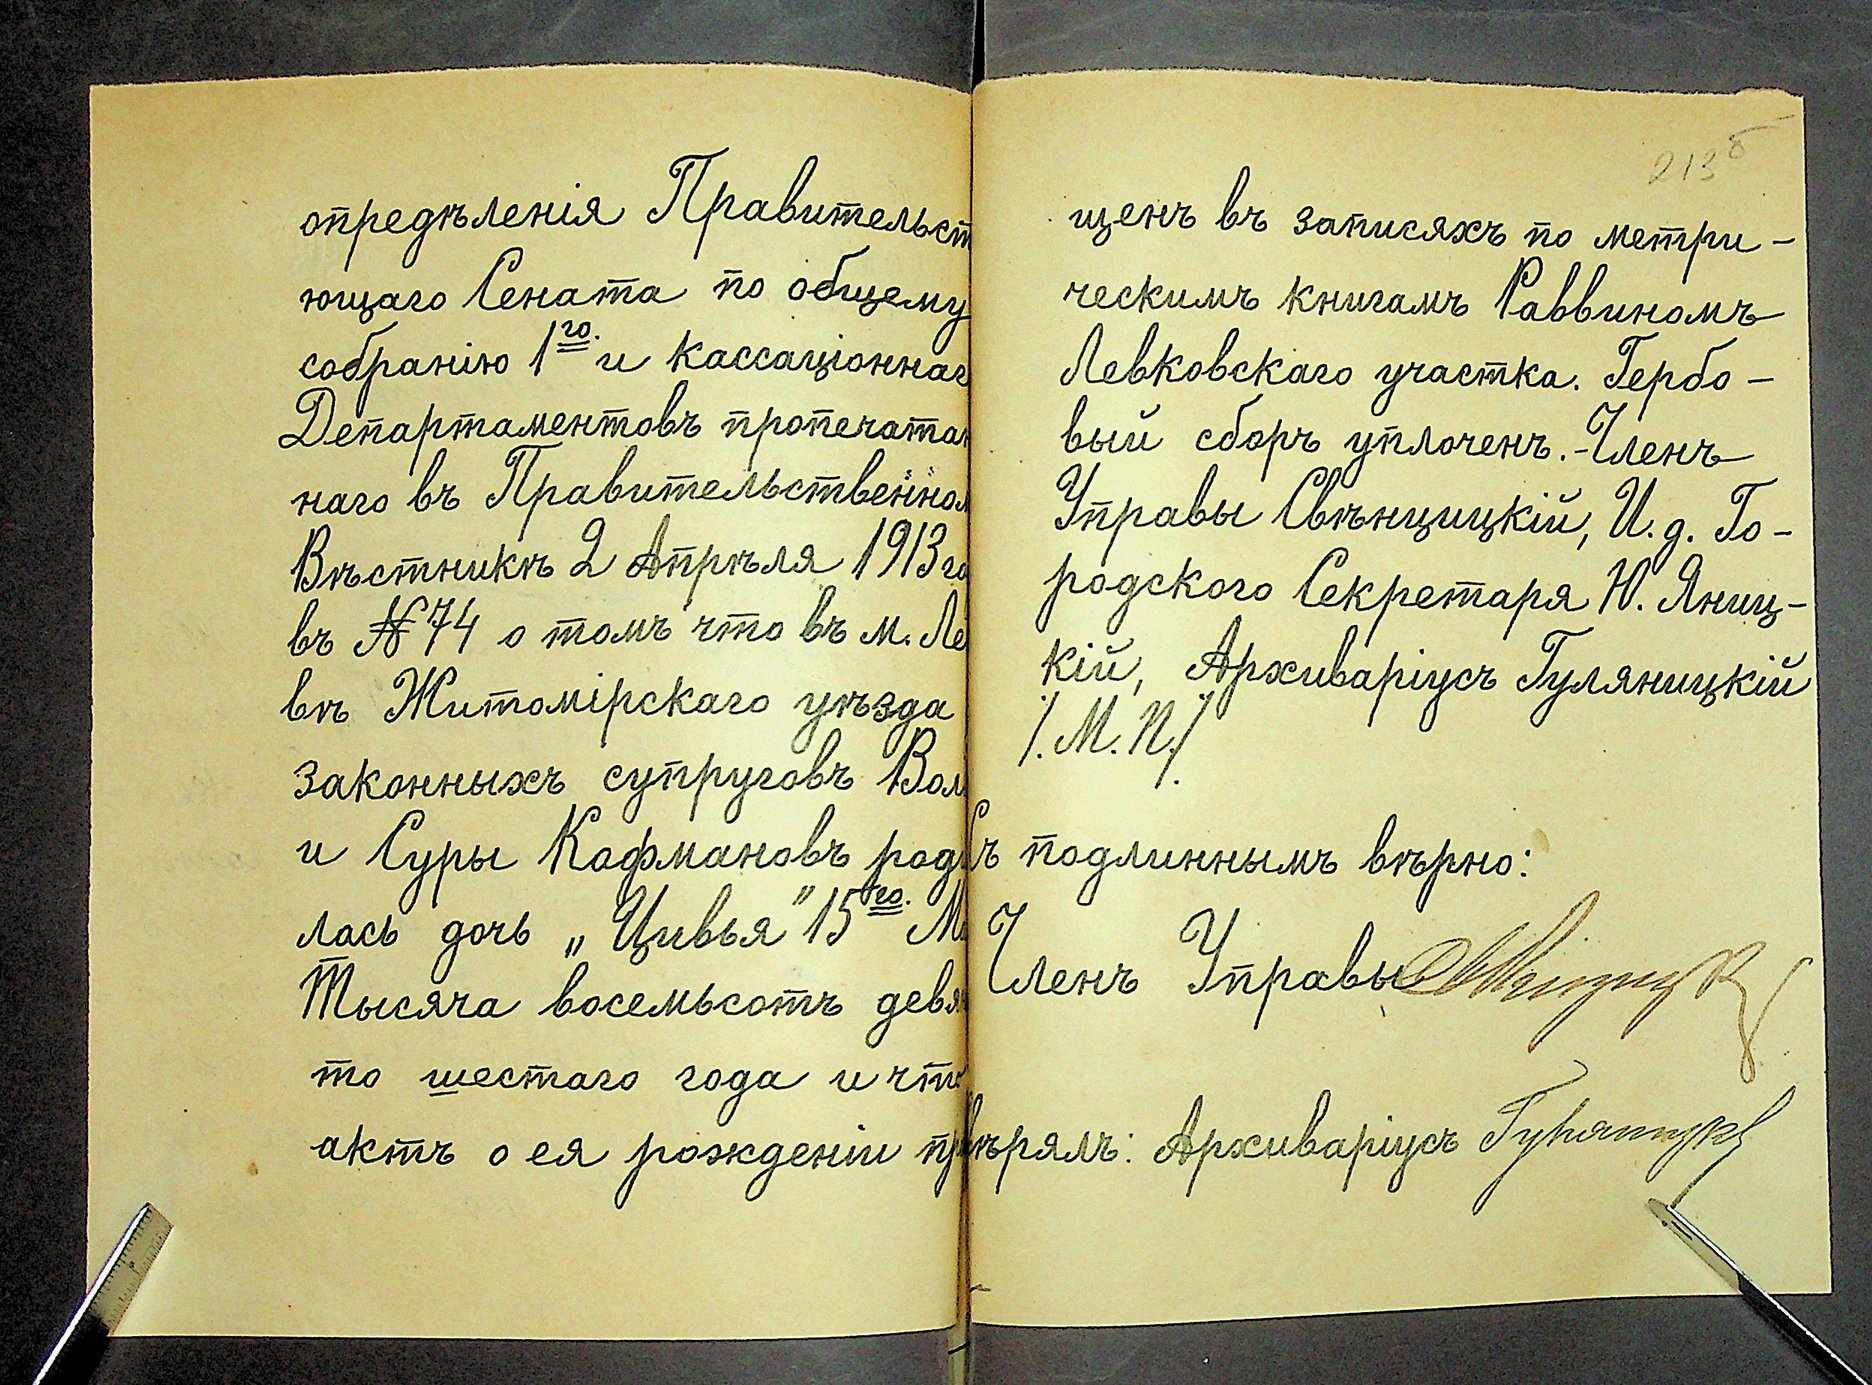 опредѣленія Правительст
ющаго Сената по общему
собранію 1го. и кассаціоннаг
Департаментовъ пропечатан
наго въ Правительственном
Вѣстникѣ 2 Апрѣля 1913 го
въ № 74 о томъ что въ м. Ле
вѣ Житомірскаго уѣзда
законныхъ супруговъ Вол
и Суры Кофмановъ роди
лась дочь „Цивья" 15го. Ма
Тысяча восемьсотъ девян
то шестаго года и что
актъ о ея рожденіи пр
213б
щенъ въ записяхъ по метри-
ческимъ книгамъ Раввиномъ
Левковскаго участка. Гербо-
вый сборъ уплоченъ.-Членъ
Управы Свѣнцицкій, И. д. Го-
родского Секретаря Ю. Яниц-
кій, Архиваріусъ Гуляницкій
/. М. П./.
Съ подлиннымъ вѣрно:
Членъ Управы
вѣрялъ: Архиваріусъ Гуляницкій